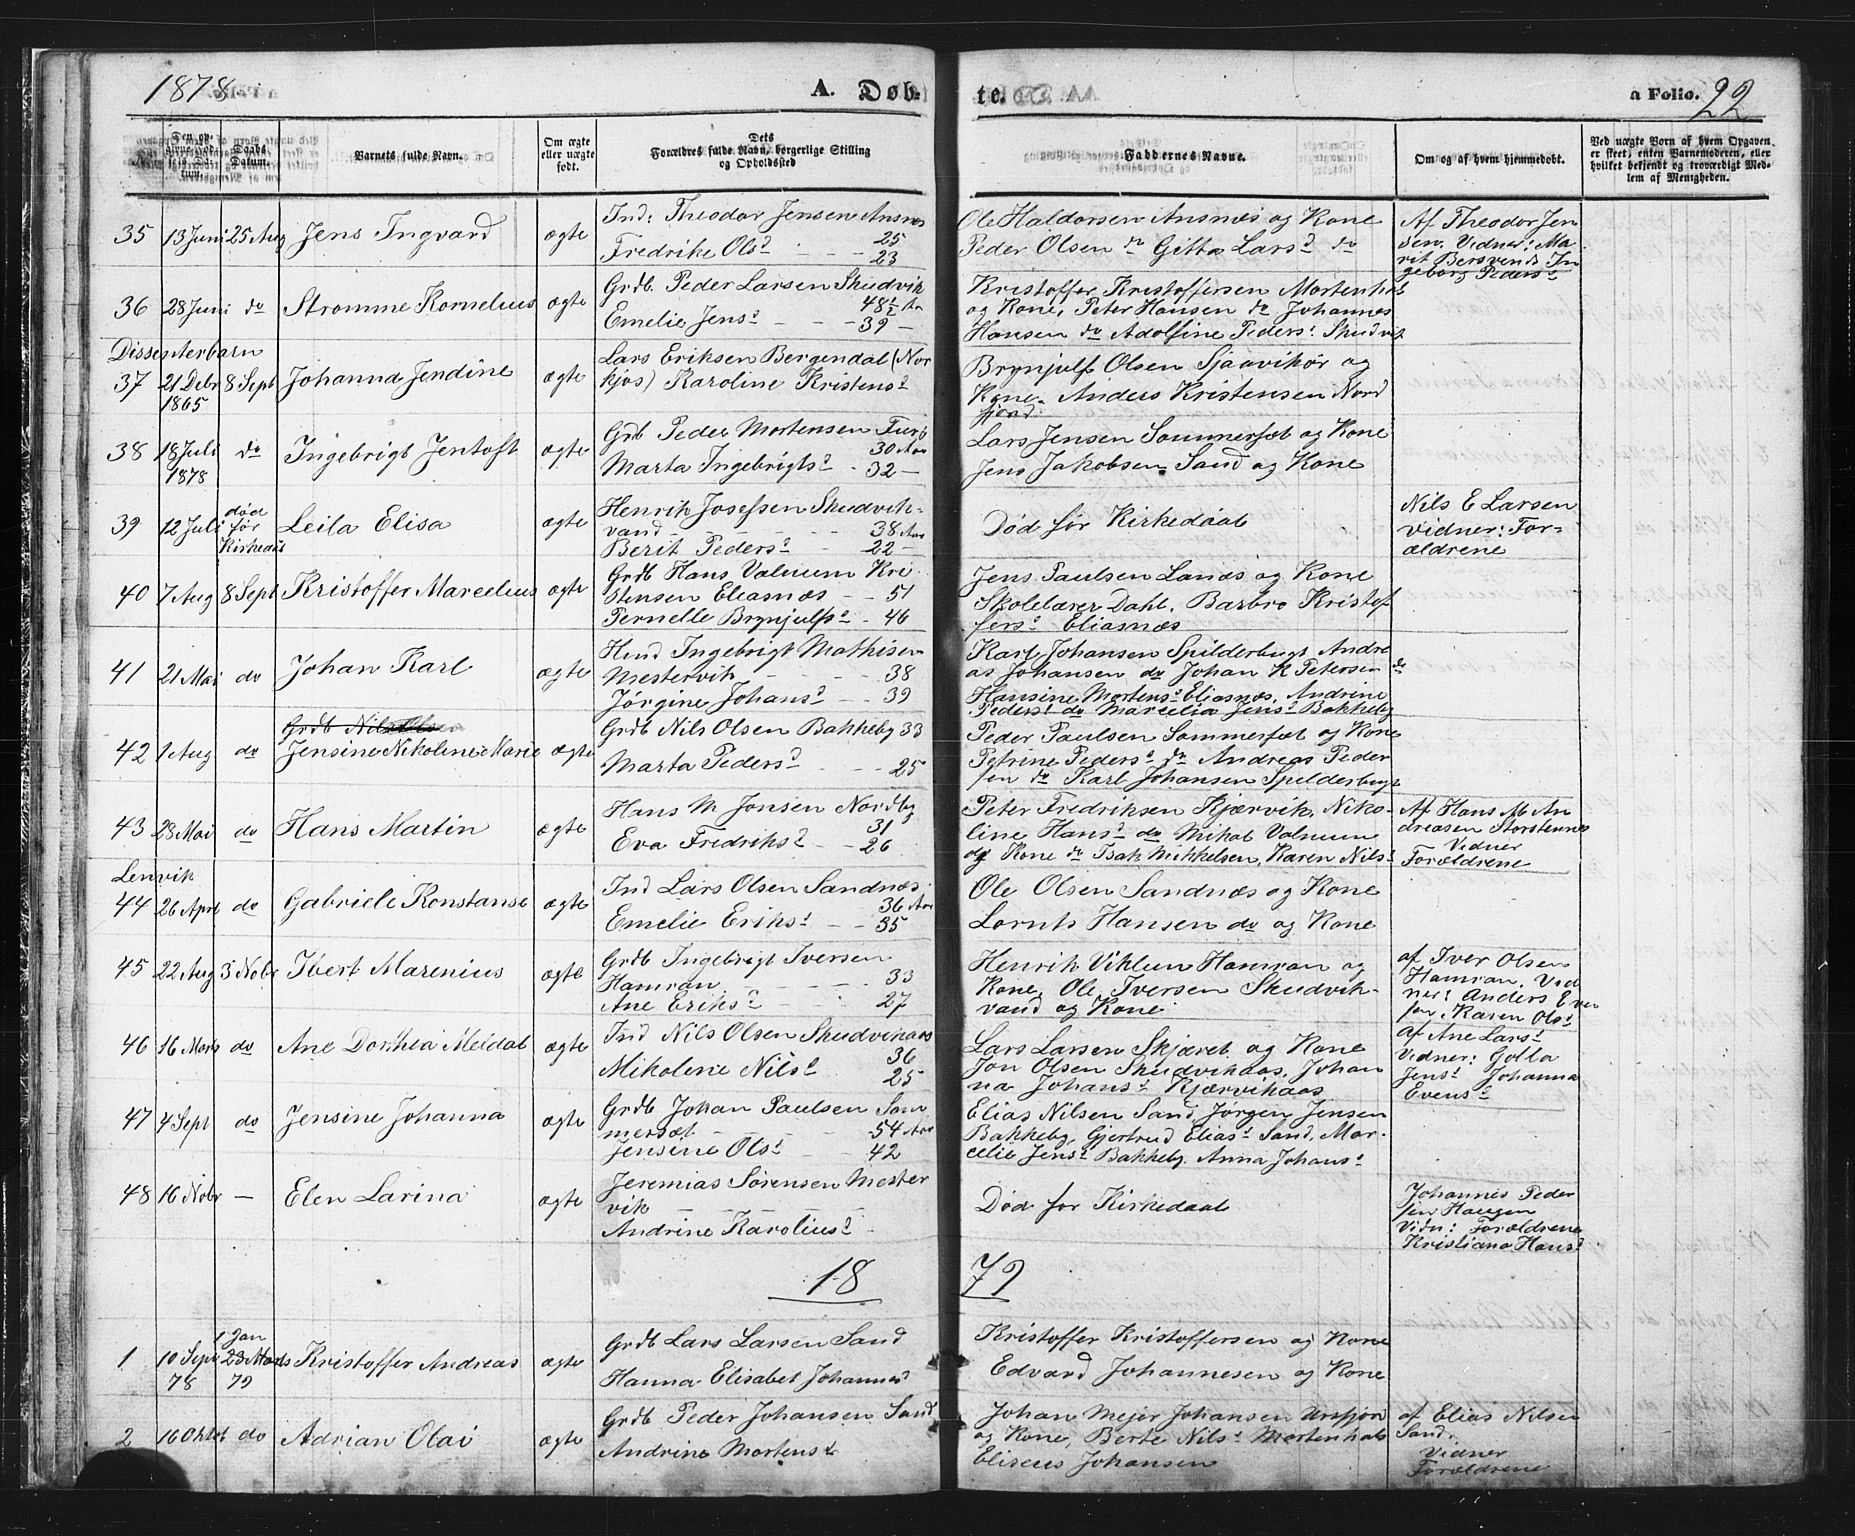 1878
A. Døb-
te.
a Folio. 22
Den op-
givne Fød-
sels Da-
tum.
Daabs
Datum.
Barnets fulde Navn.
Om ægte
eller uægte
født.
Dets
Forældres fulde Navn, borgerlige Stilling
og Opholdssted
Faddernes Navne.
Om og af hvem hjemmedøbt.
Ved uægte Børn af hvem Opgaven
er skeet, enten Barnemoderen, eller
hvilket bekjendt og troværdigt Med-
lem af Menigheden.
35 13 Juni 25 Aug Jens Ingvard ægte
Ind: Theodor Jensen Ansnes 25
Fredrike Olsd - - - 23
Ole Haldorsen Ansnæs og Kone
Peder Olsen do Gitta Larsd do
Af Theodor Jen
sen. Vidner: Ma
rit Bersvends In
geborg Pedersd
36 28 Juni do Strømme Kornelius ægte
Grdb. Peder Larsen Skudvik 48½ Aar
Emelie Jensd - - - 39 -
Kristoffer Kristoffersen Mortenhals
og Kone, Peter Hansen do Johannes
Hansen do Adolfine Pedersd Skudvik
Dissenterbarn
37 21 Debr 1865 8 Sept Johanna Jendine ægte
Lars Eriksen Bergendal (Nor
kjos) Karoline Kristensd
Brynjulf Olsen Sjaavikør og
Kone. Anders Kristensen Nord
fjord.
38 18 Juli 1878 do Ingebrigt Jentoft ægte
Grdb Peder Mortensen Furø 30 Aar
Marta Ingebrigtsd - 32 -
Lars Jensen Sommersæt og Kone
Jens Jakobsen Sand og Kone
39 12 Juli død før Kirkedåb Leila Elisa ægte
Henrik Josefsen Skudvik-
vand - - - 38 Aar
Berit Pedersd - 22 -
Død før Kirkedaab
Nils E Larsen
Vidner: For-
ældrene
40 7 Aug 8 Sept Kristoffer Marcelius ægte
Grdb Hans Valnum Kri
stensen Eliasnæs - - 51
Pernelle Brynjulfsd - 46
Jens Paulsen Lanæs og Kone
Skolelærer Dahl, Barbro Kristof
fersd Eliasnæs
41 21 Mai do Johan Karl ægte
Hmd Ingebrigt Mathisen
Mestervik - - - 38
Jørgine Johansd - - 39
Karl Johansen Spilderbugt Andre
as Johansen do Johan K Petersen do
Hansine Mortensd Eliasnæs, Andrine
Pedersd do Marcelia Jensd Bakkeby
Grdb Nils Olsen
42 1 Aug do Jensine Nikoline Marie ægte
Grdb Nils Olsen Bakkeby 33
Marta Pedersd - - - 25
Peder Paulsen Sommersæt og Kone
Petrine Pedersd do Andreas Peder
sen do Karl Johansen Spilderbugt
43 28 Mai do Hans Martin ægte
Hans M Jonsen Nordby 31
Eva Fredriksd - - 26
Peter Fredriksen Kjærvik, Niko-
line Hansd do Mikal Valnum
og Kone do Isak Mikkelsen, Karen Nilsd
Af Hans M An
dreasen Storstennes
Vidner
Forældrene
Lenvik
44 26 April do Gabriele Konstanse ægte
Ind Lars Olsen Sandnæs 36 Aar
Emelie Eriksd - - 35
Ole Olsen Sandnæs og Kone
Lornts Hansen do og Kone
45 22 Aug 3 Nobr Ibert Marenius ægte
Grdb Ingebrigt Iversen
Hamran - - - 33
Ane Eriksd - 27
Henrik Viklun Hamran og
Kone, Ole Iversen Skudvik-
vand og Kone
af Iver Olsen
Hamran. Vid
ner: Anders Ever
sen, Karen Olsd
46 16 Marts do Ane Dorthea Meldal ægte
Ind Nils Olsen Skudvikaas 36
Mikoline Nilsd 25
Lars Larsen Skjæret og Kone
Jon Olsen Skudvikaas, Johan
na Johansd Kjærvikaas
af Ane Larsd
Vidner: Golla
Jensd Johanna
Evensd
47 4 Sept do Jensine Johanna ægte
Grdb Johan Paulsen Som
mersæt - - - 54 Aar
Jensine Olsd - 42
Elias Nilsen Sand, Jørgen Jensen
Bakkeby, Gjertrud Eliasd Sand, Mar-
celie Jensd Bakkeby. Anna Johansd
48 16 Nobr - Elen Larina ægte
Jeremias Sørensen Mester
vik - - - -
Andrine Karoliusd -
Død før Kirkedaab
Johannes Peder
sen Haugen
Vidn: Forældrene
Kristiana Hansd
18 79
1 10 Sept 78 1 Jan 23 Marts 79 Kristoffer Andreas ægte
Grdb Lars Larsen Sand
Hanna Elisabet Johannesd
Kristoffer Kristoffersen og Kone
Edvard Johannesen og Kone
2 16 Oktob do Adrian Olai ægte
Grdb Peder Johansen Sand
Andrine Mortensd
Johan Mejer Johansen Ursfjord
og Kone, Berte Nilsd Mortenhals
Eliseus Johansen
af Elias Nilsen
Sand.
Vidner
Forældrene